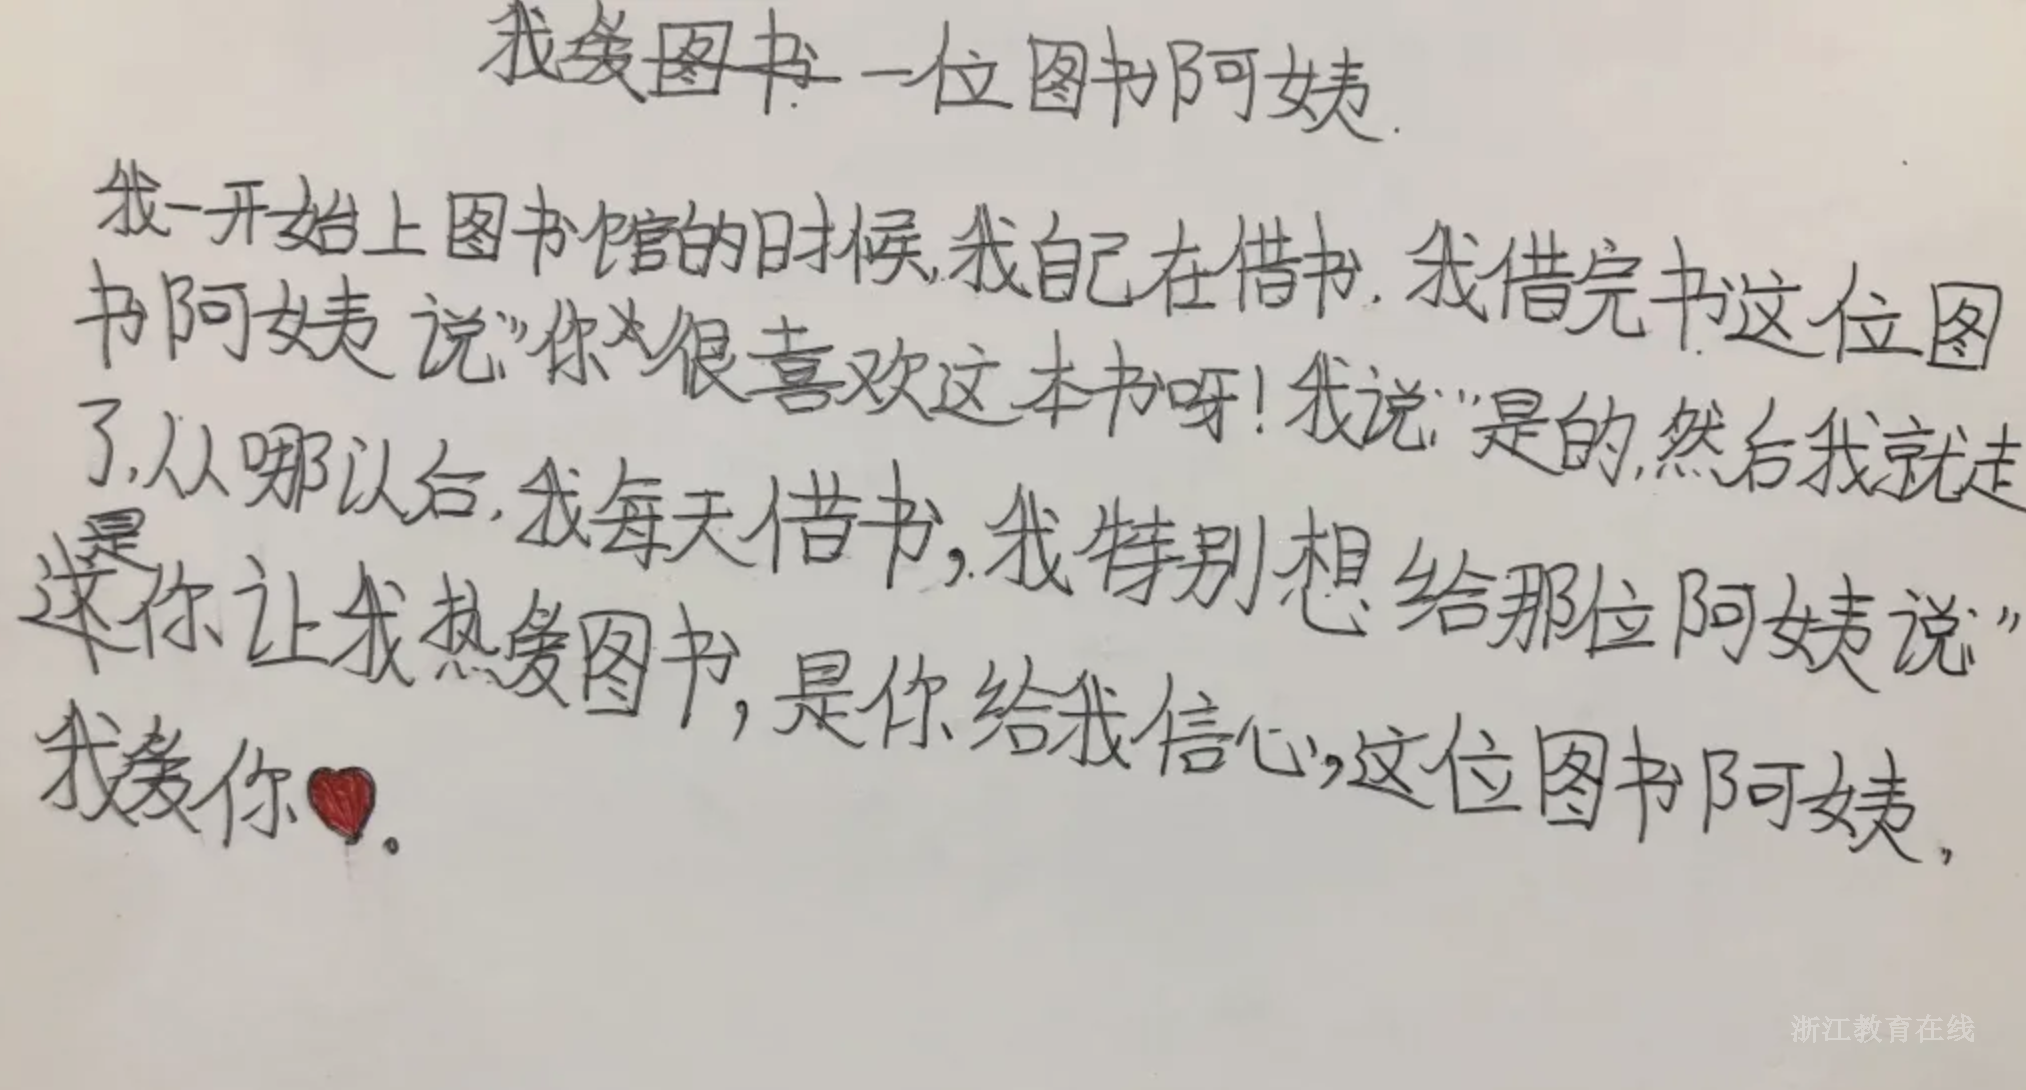 我爱图书一位图书阿姨.
我一开始上图书馆的时候,我自己在借书.我借完书这位图
书阿姨说:"你很喜欢这本书呀!我说:"是的,然后我就走
了,从哪以后,我每天借书,我特别想给那位阿姨说:"
是你让我热爱图书,是你给我信心,这位图书阿姨,
我爱你❤.
浙江教育在线